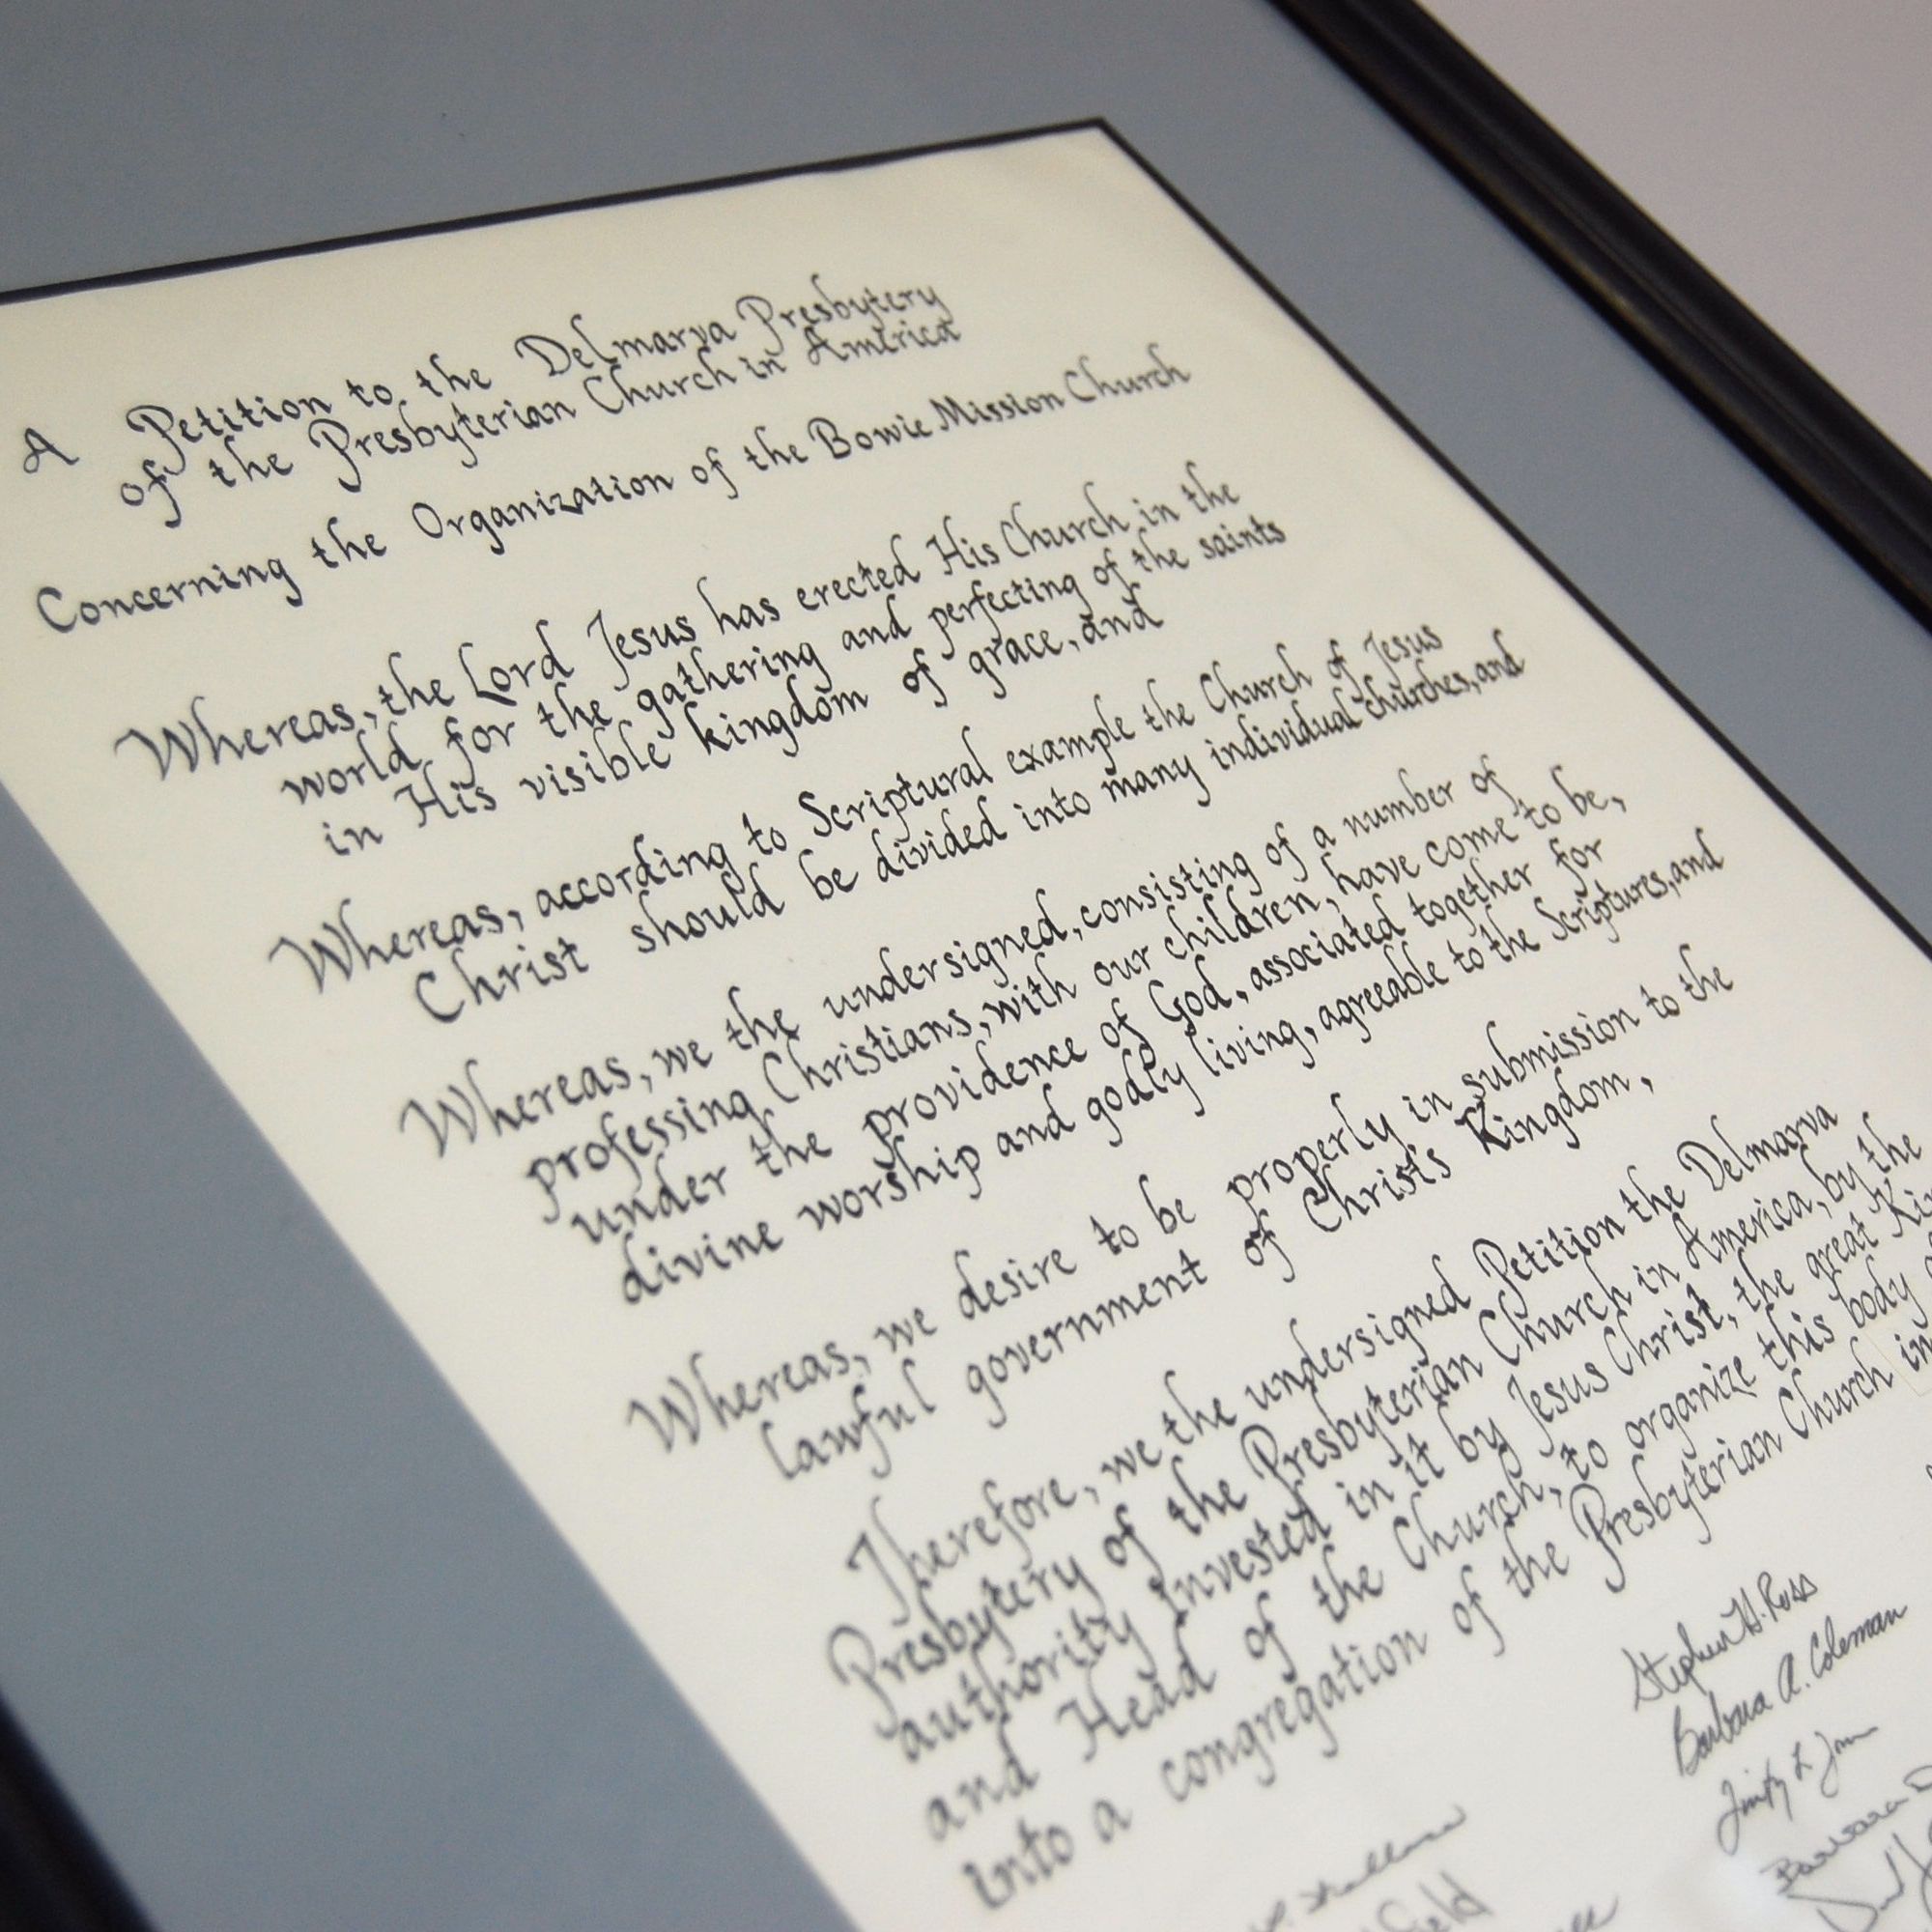 A Petition to the Delmarva Presbytery
of the Presbyterian Church in America
Concerning the Organization of the Bowie Mission Church
Whereas, the Lord Jesus has erected His Church in the
world for the gathering and perfecting of the saints
in His visible kingdom of grace, and
Whereas, according to Scriptural example the Church of Jesus
Christ should be divided into many individual churches, and
Whereas, we the undersigned, consisting of a number of
professing Christians, with our children, have come to be,
under the providence of God, associated together for
divine worship and godly living, agreeable to the Scriptures, and
Whereas, we desire to be properly in submission to the
lawful government of Christ's Kingdom,
Therefore, we the undersigned Petition the Delmarva
Presbytery of the Presbyterian Church in America, by the
authority invested in it by Jesus Christ, the great
and Head of the Church, to organize this body
into a congregation of the Presbyterian Church in
Stephen H. Ross
Barbara A. Coleman
Barbara